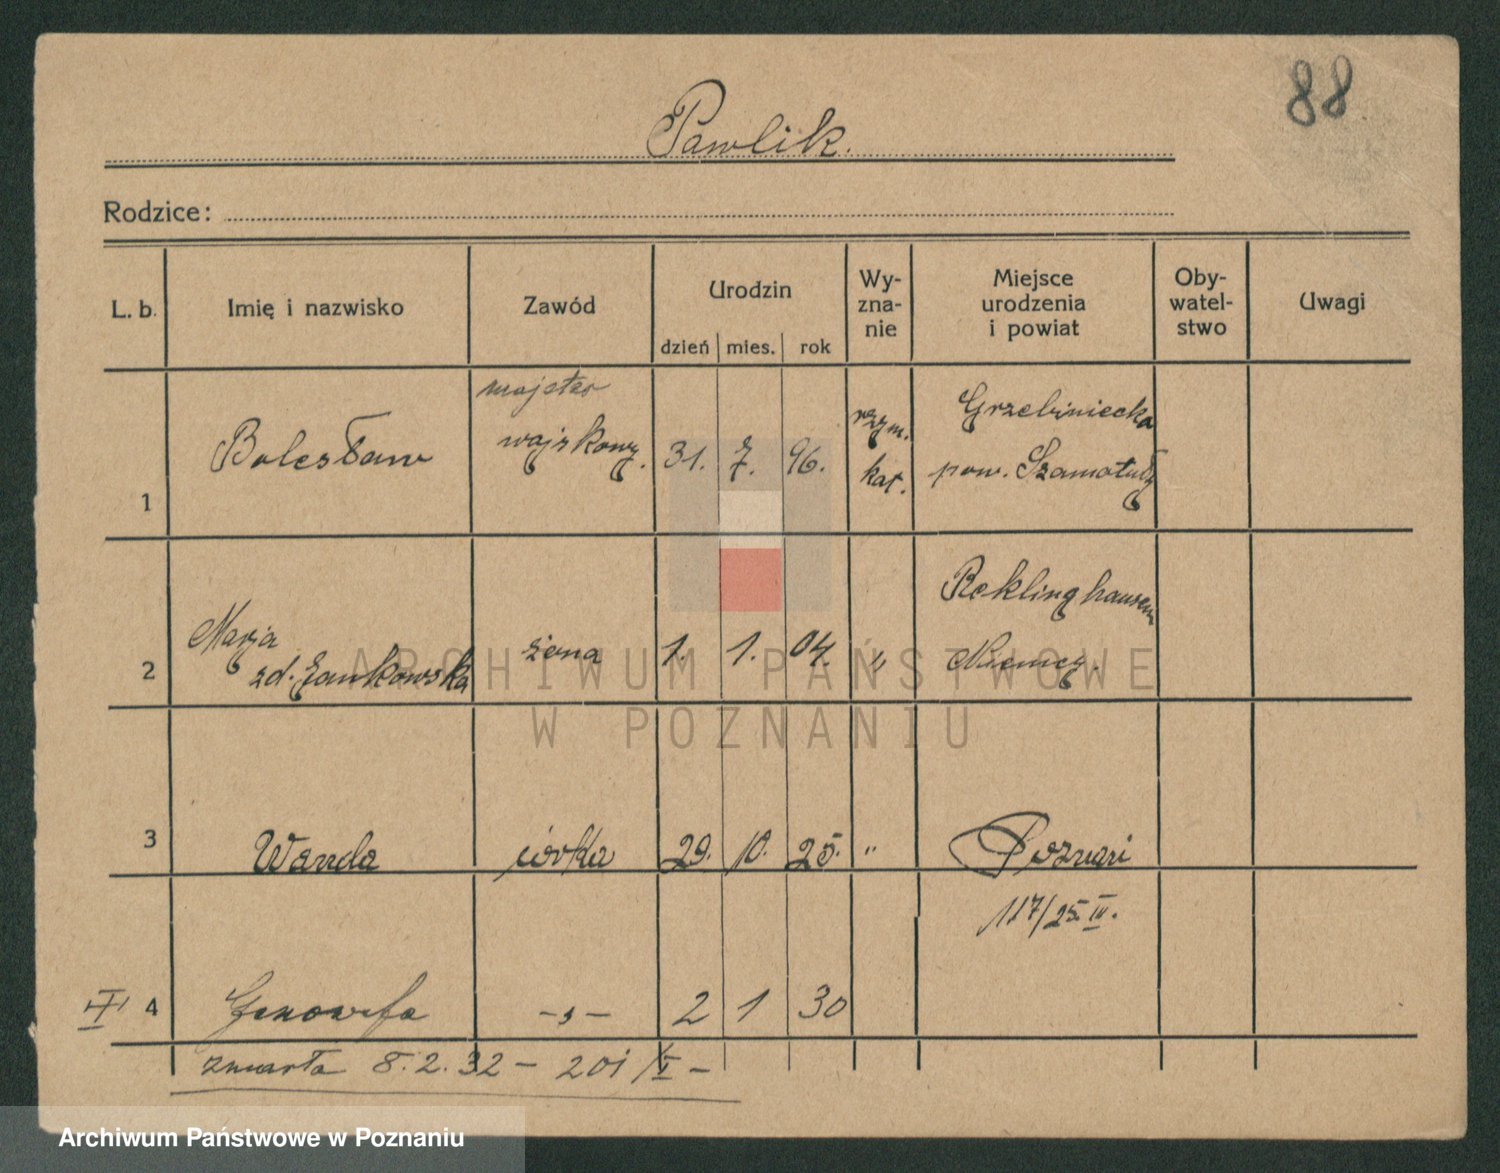 88
Pawlik.
Rodzice:
L. b. Imię i nazwisko Zawód Urodzin dzień mies. rok Wy-zna-nie Miejsce urodzenia i powiat Oby-watel-stwo Uwagi
majster
1 Bolesław wojskowy. 31. 7. 96. rzym. kat. Grzebiniecka
pow. Szamotuły
Reklinghausen
2 Marja żena 1. 1. 04. " Niemcy.
zd. Żankowska
ARCHIWUM PAŃSTWOWE
W POZNANIU
3 Wanda córka 29. 10. 25. " Poznań
117/25 IV.
4 Genowefa -„- 2 1 30
zmarła 8.2.32 - 201/I -
Archiwum Państwowe w Poznaniu